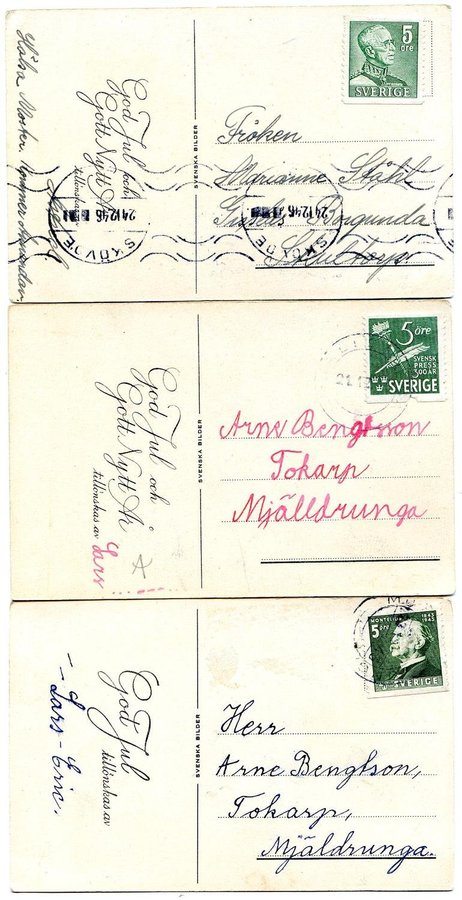 5
öre
SVERIGE
God Jul och
Gott Nytt År
tillönskas av
SVENSKA BILDER
Fröken
Marianne Ståhl
Skultorp.
SKÖVDE
24.12.46
SKÖVDE
24.12.46
Hälsa Moster
5 öre
SVENSK
PRESS
300 ÅR
SVERIGE
God Jul och
Gott Nytt År
tillönskas av
Lars
SVENSKA BILDER
Arne Bengtson
Tokarp
Mjälldrunga
MONTELIUS
1843
1943
5 öre
SVERIGE
God Jul
tillönskas av
-- Lars-Eric.
SVENSKA BILDER
Herr
Arne Bengtson,
Tokarp,
Mjäldrunga.